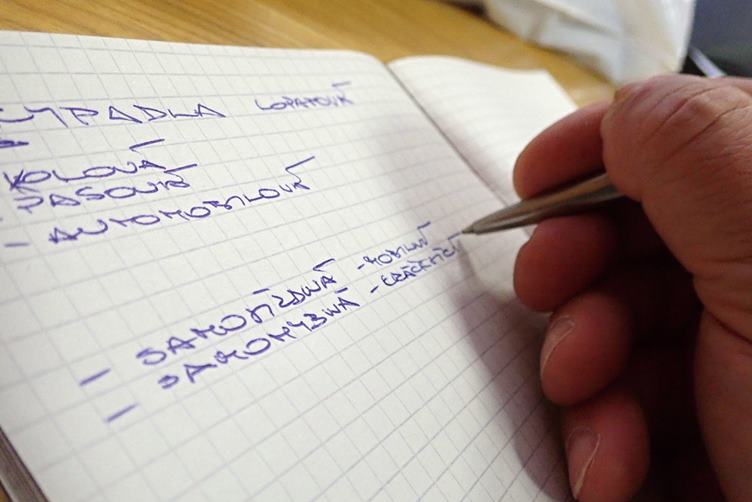 YPADLA LOPATOVÁ
KOLOVÁ
- PASOVÁ
- AUTOMOBILOVÁ
- SAMOJÍZDNÁ - MOBILNÍ
- SAMOHYBNÁ